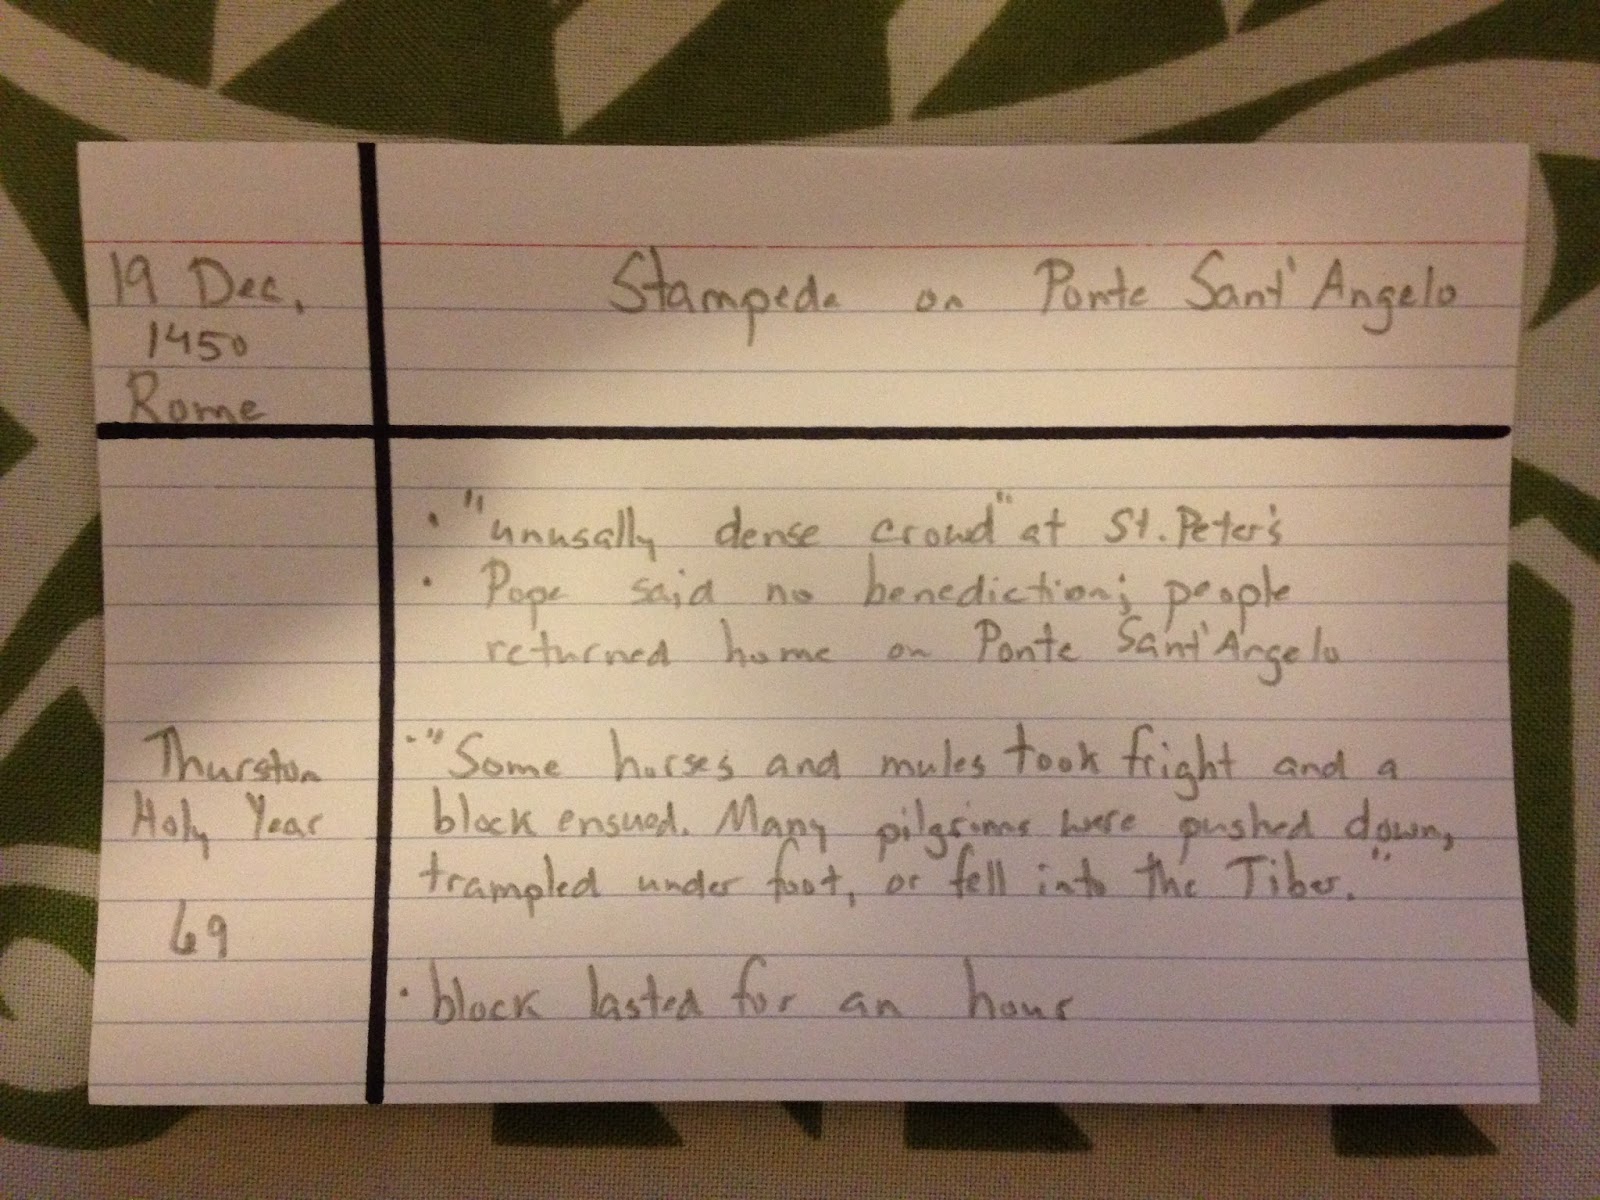 19 Dec,
1450
Rome
Stampede on Ponte Sant'Angelo
• "unusally dense crowd" at St. Peter's
• Pope said no benediction; people
returned home on Ponte Sant'Angelo
Thurston
Holy Year
69
• "Some horses and mules took fright and a
block ensued. Many pilgrims were pushed down,
trampled under foot, or fell into the Tiber."
• block lasted for an hour